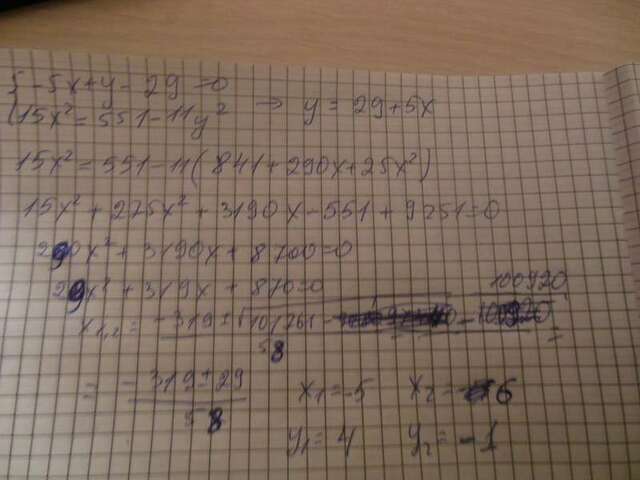 { -5x+y-29=0
15x²=551-11y² → y=29+5x
15x²=551-11(841+290x+25x²)
15x²+275x²+3190x-551+9251=0
290x²+3190x+8700=0
29x²+319x+870=0
x₁,₂= -319±√101761- 100920
58
= -319±29
58
x₁=-5 x₂=-6
y₁=4 y₂=-1